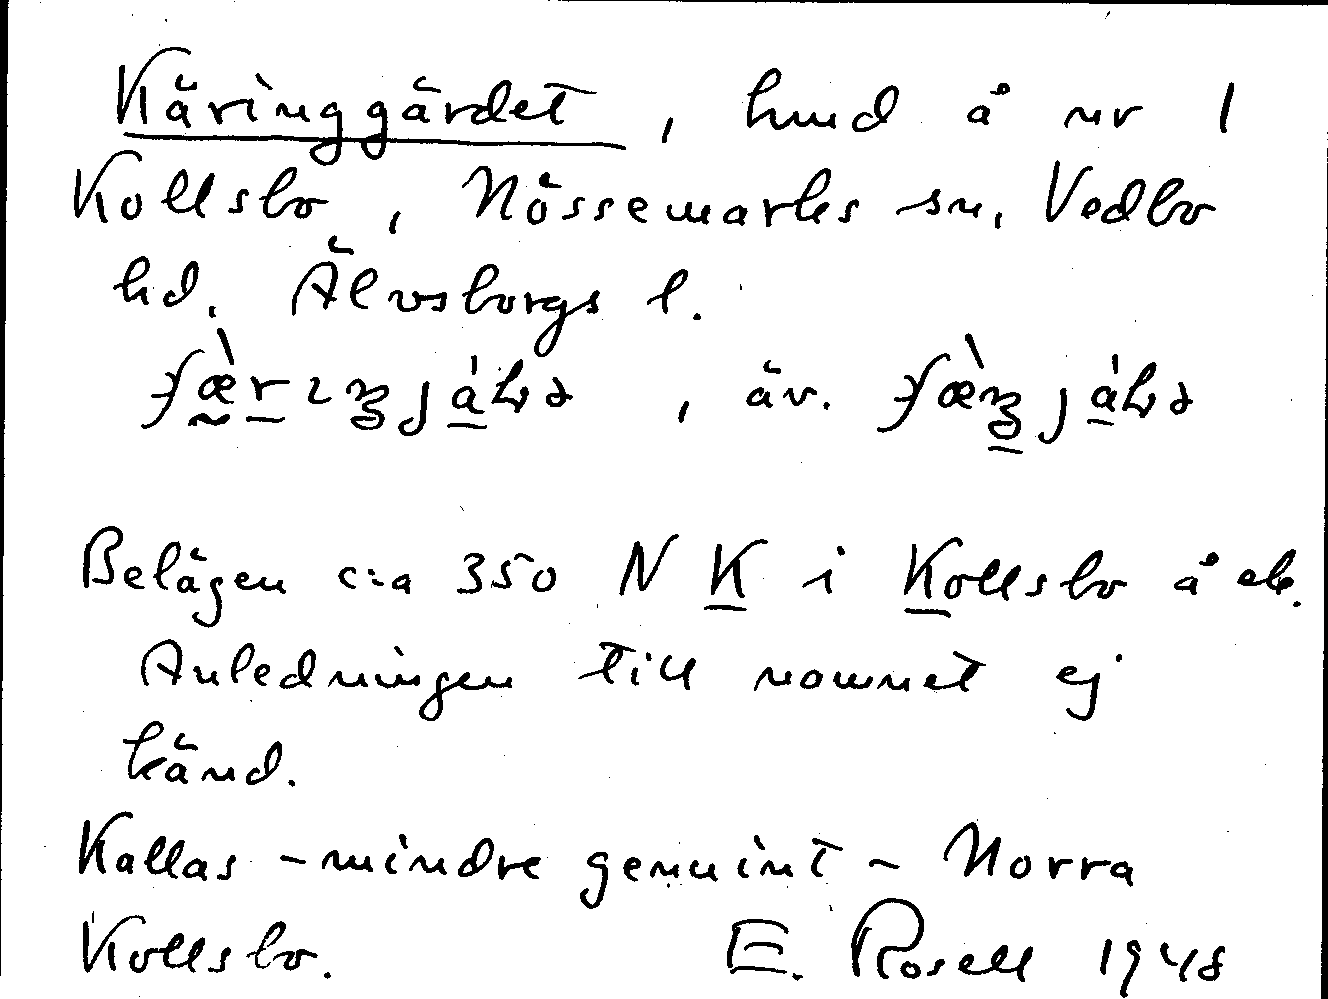 Käringgärdet, hmd å nr 1
Kollsbo, Nössemarks sn, Vedbo
hd. Älvsborgs l.
, äv.
Belägen c:a 350 N K i Kollsbo å ek.
Anledningen till namnet ej
känd.
Kallas - mindre genuint - Norra
Kollsbo. E. Rosell 1948